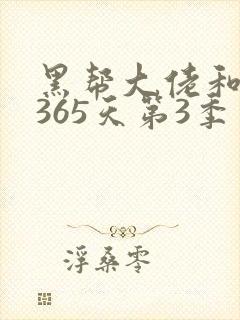 黑帮大佬和
365天第3季
浮桑零